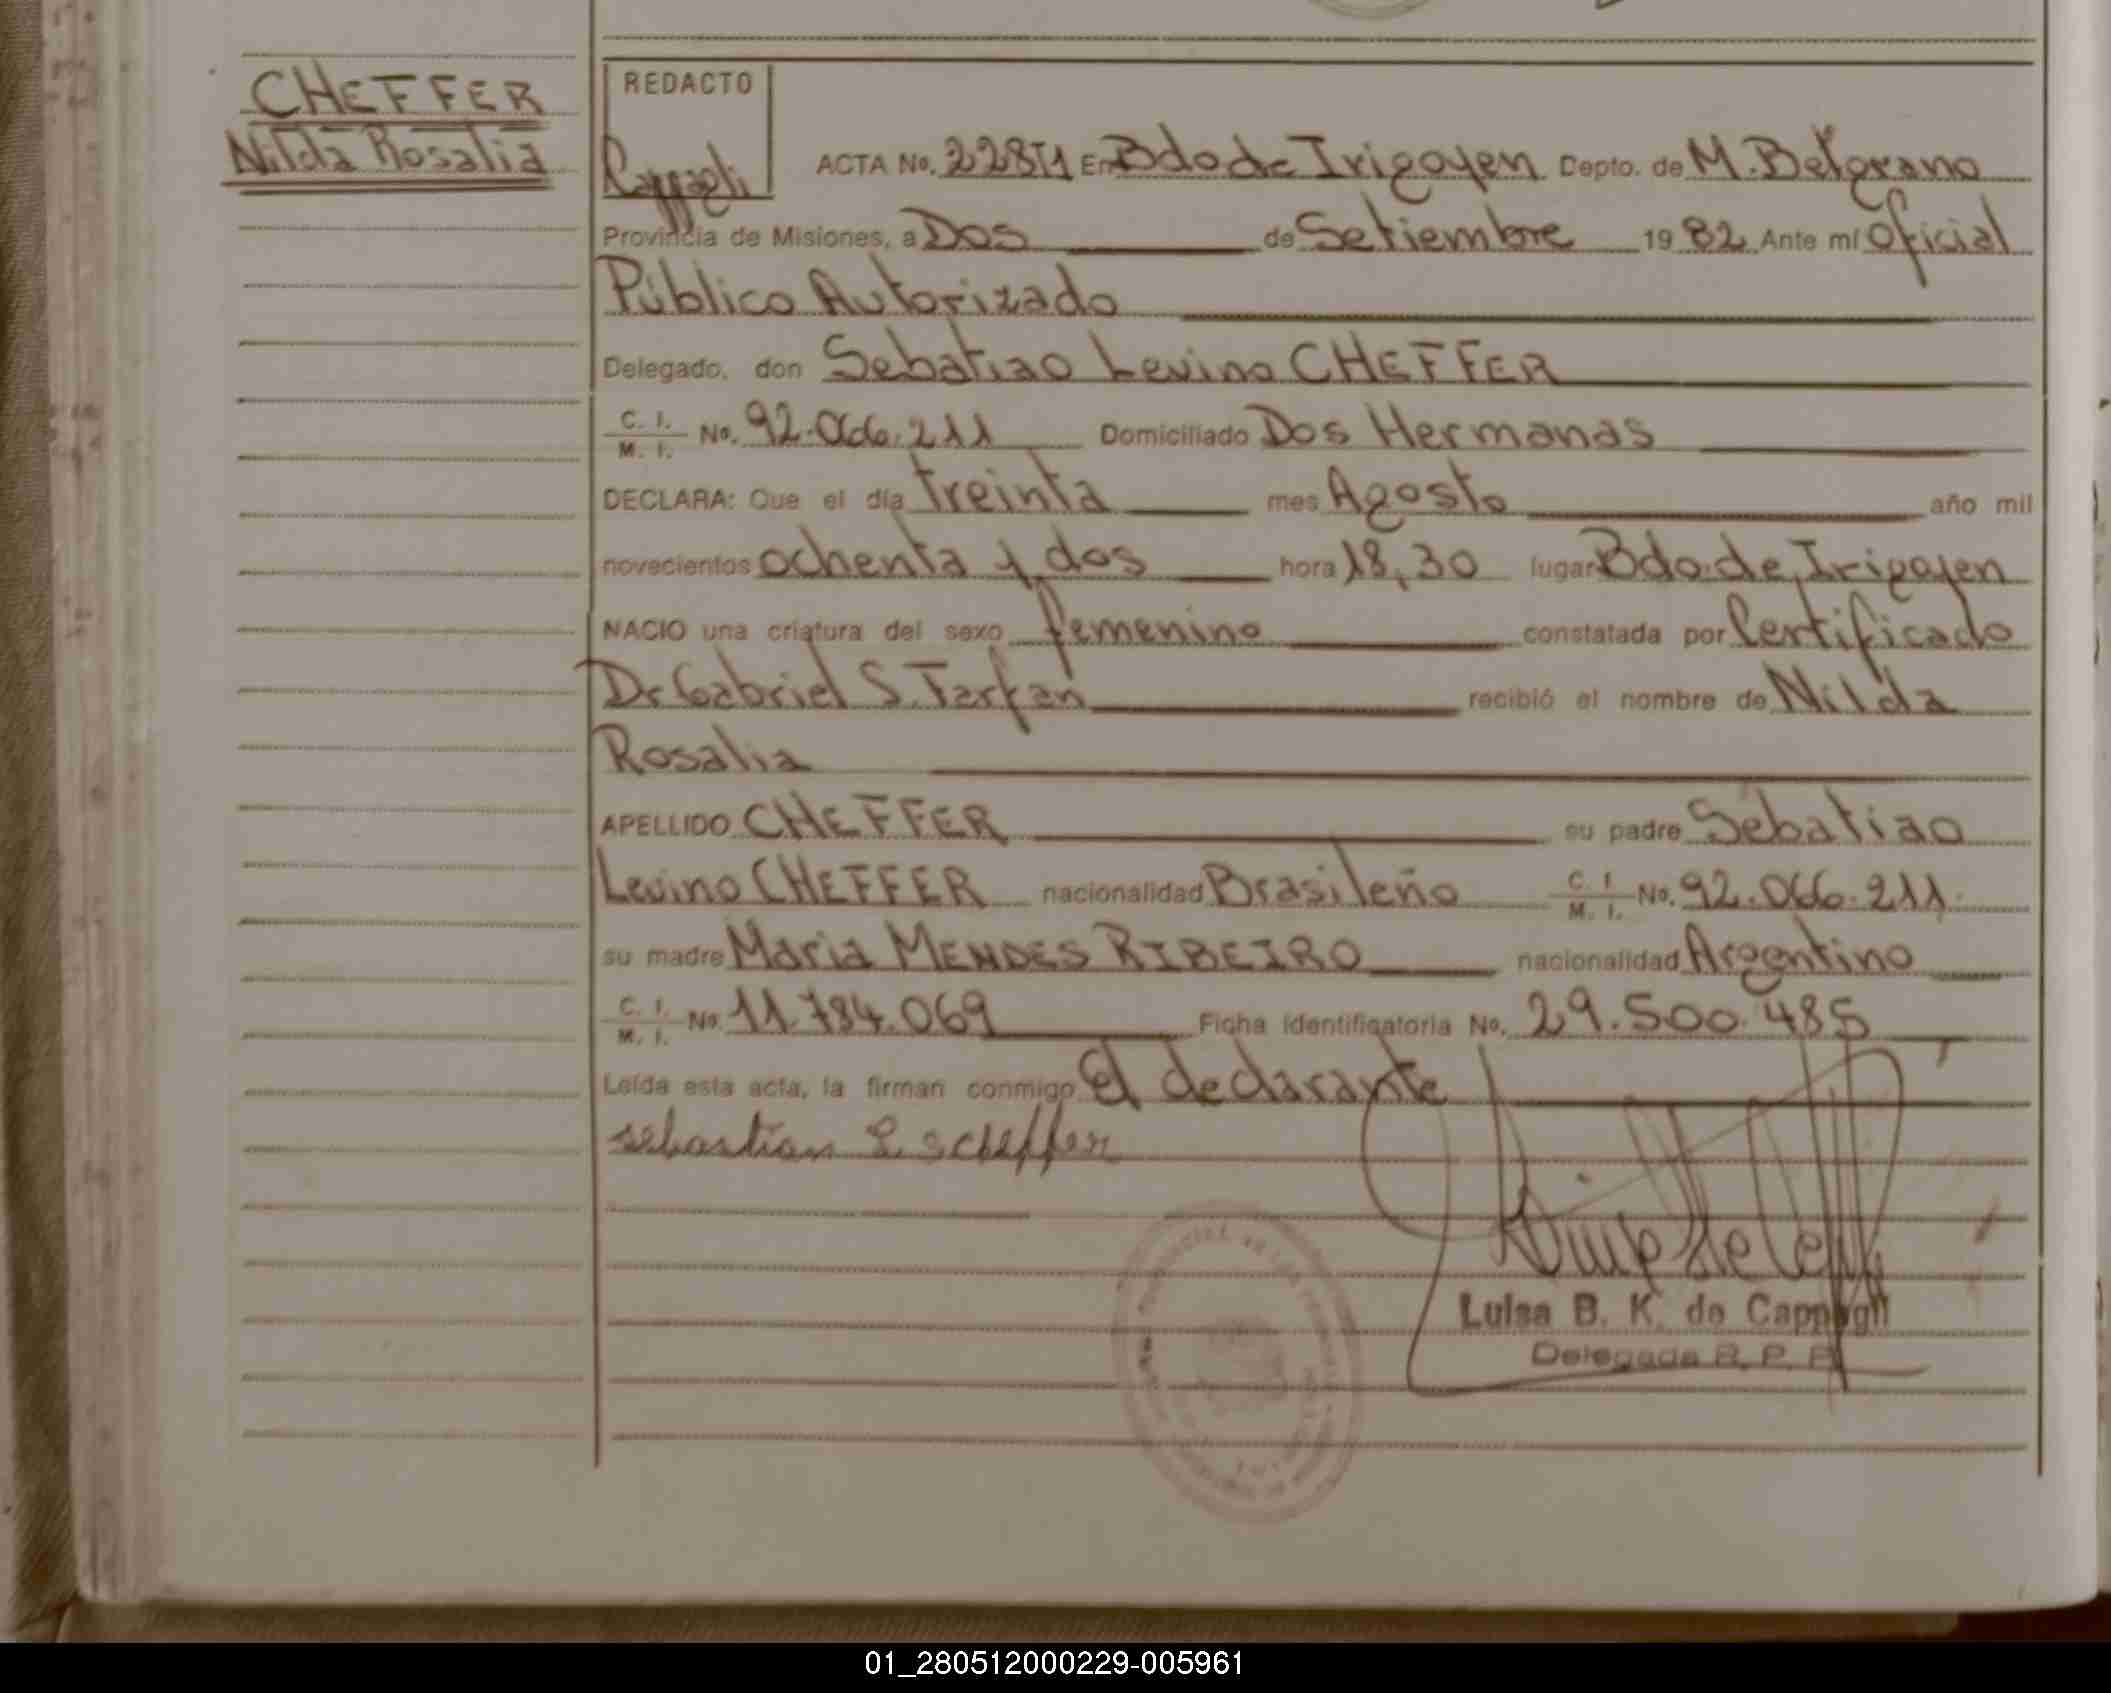 CHEFFER
Nilda Rosalia
REDACTO
Cappagli
ACTA No. 228T1 En Bdo de Irigoyen Depto. de M. Belgrano
Provincia de Misiones, a Dos de Setiembre 19 82 Ante mí Oficial
Público Autorizado
Delegado, don Sebatiao Levino CHEFFER
C. I. / M. I. No. 92.066.211 Domiciliado Dos Hermanas
DECLARA: Que el día treinta mes Agosto año mil
novecientos ochenta y dos hora 18,30 lugar Bdo. de Irigoyen
NACIO una criatura del sexo femenino constatada por Certificado
Dr Gabriel S. Tarfan recibió el nombre de Nilda
Rosalia
APELLIDO CHEFFER su padre Sebatiao
Levino CHEFFER nacionalidad Brasileño C. I. / M. I. No. 92.066.211.
su madre Maria MENDES RIBEIRO nacionalidad Argentino
C. I. / M. I. No. 11.784.069 Ficha Identificatoria No. 29.500.485
Leída esta acta, la firman conmigo El declarante
sebastian L scheffer
Luisa B. K. de Cappagli
Delegada R. P. P.
01_280512000229-005961